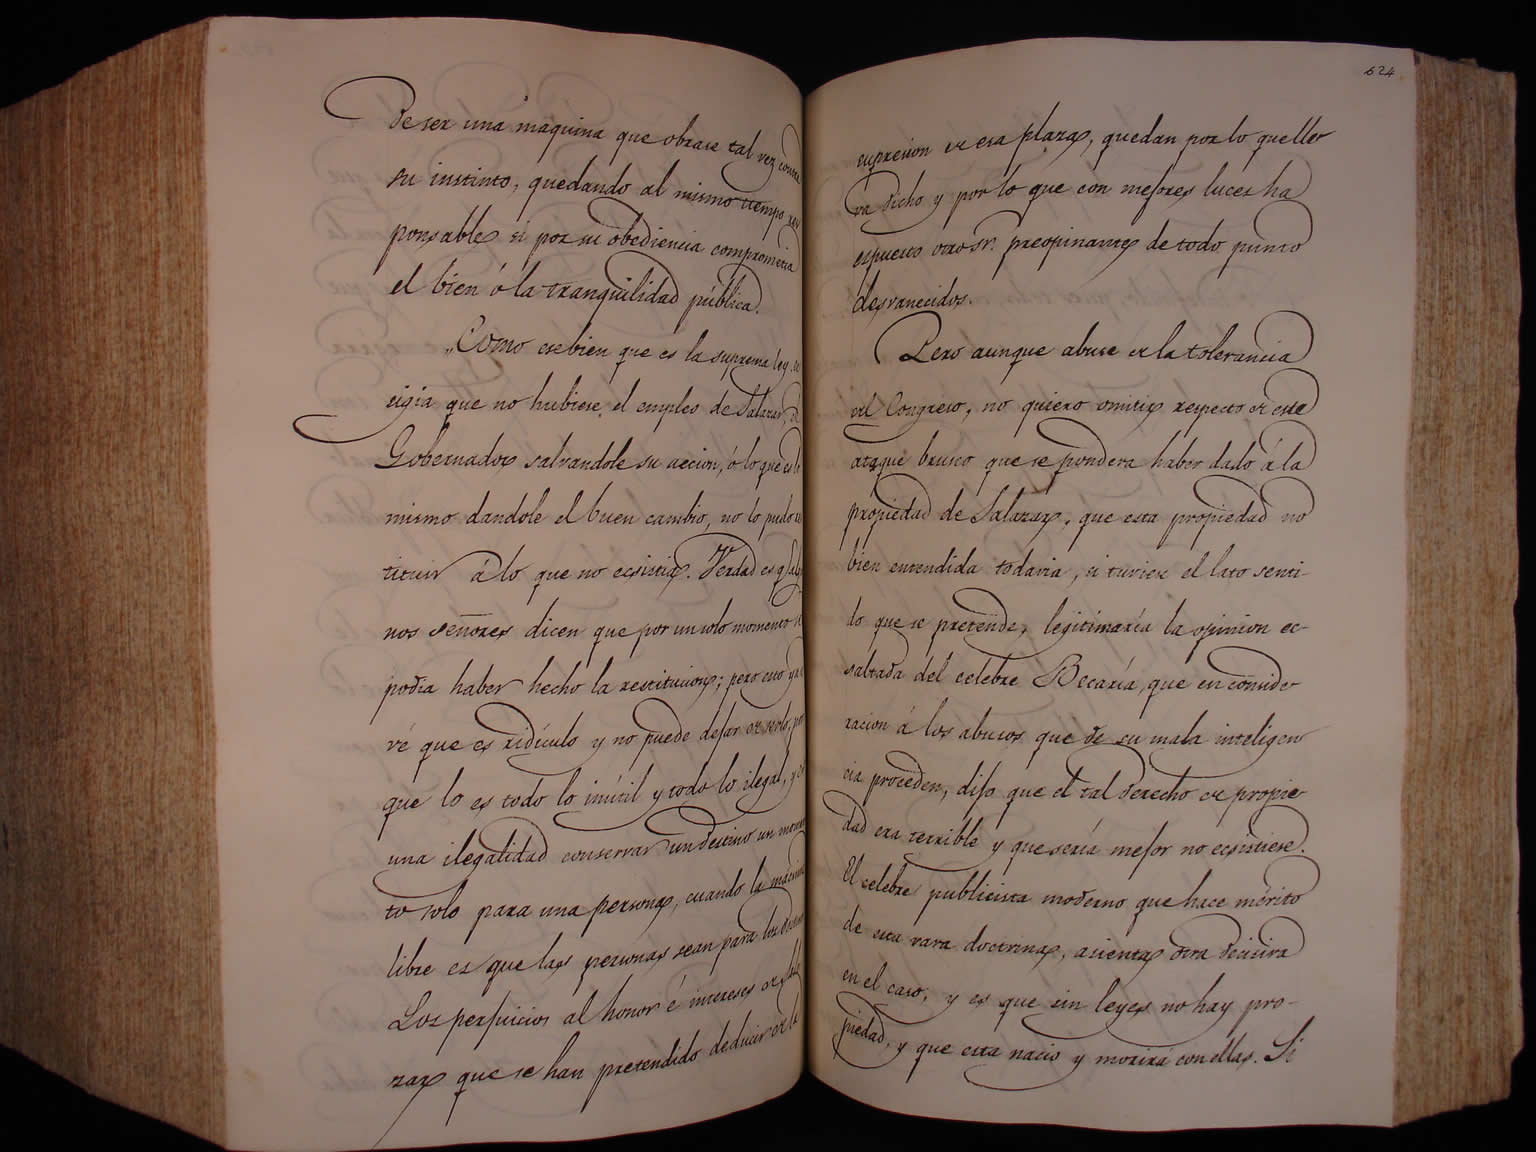 de ser una maquina que obrase tal vez contra
su instinto, quedando al mismo tiempo res
ponsable si por su obediencia comprometia
el bien ó la tranquilidad pública.
„Como ese bien que es la suprema ley ec
sigia que no hubiese, el empleo de Salazar, el
Gobernador salvandole su accion, ó lo que es lo
mismo dandole el buen cambio, no lo pudo res
tituir á lo que no ecsistia. Verdad es q. algu
nos señores dicen que por un solo momento se
podia haber hecho la restitucion; pero esto ya se
vé que es ridículo y no puede dejar de serlo, por
que lo es todo lo inútil y todo lo ilegal, y es
una ilegalidad conservar un destino un momen
to solo para una persona, cuando la máxima
libre es que las personas sean para los destinos
Los perjuicios al honor é intereses de Sala
zar que se han pretendido deducir de la
624
supresion de esa plaza, quedan por lo que lle
va dicho y por lo que con mejores luces ha
espuesto otro Sr. preopinante de todo punto
desvanecidos.
Pero aunque abuse de la tolerancia
del Congreso, no quiero omitir respecto de este
ataque brusco que se pondera haber dado á la
propiedad de Salazar, que esta propiedad no
bien entendida todavia, si tuviese el lato senti-
do que se pretende, legitimaría la opinion ec-
saltada del celebre Becaría, que en conside
racion á los abusos que de su mala inteligen
cia proceden, dijo que el tal derecho de propie
dad era terrible y que sería mejor no ecsistiese.
El celebre publicista moderno que hace mérito
de esta rara doctrina, asienta otra decisiva
en el caso, y es que sin leyes no hay pro-
piedad, y que esta nacio y morirá con ellas. Si